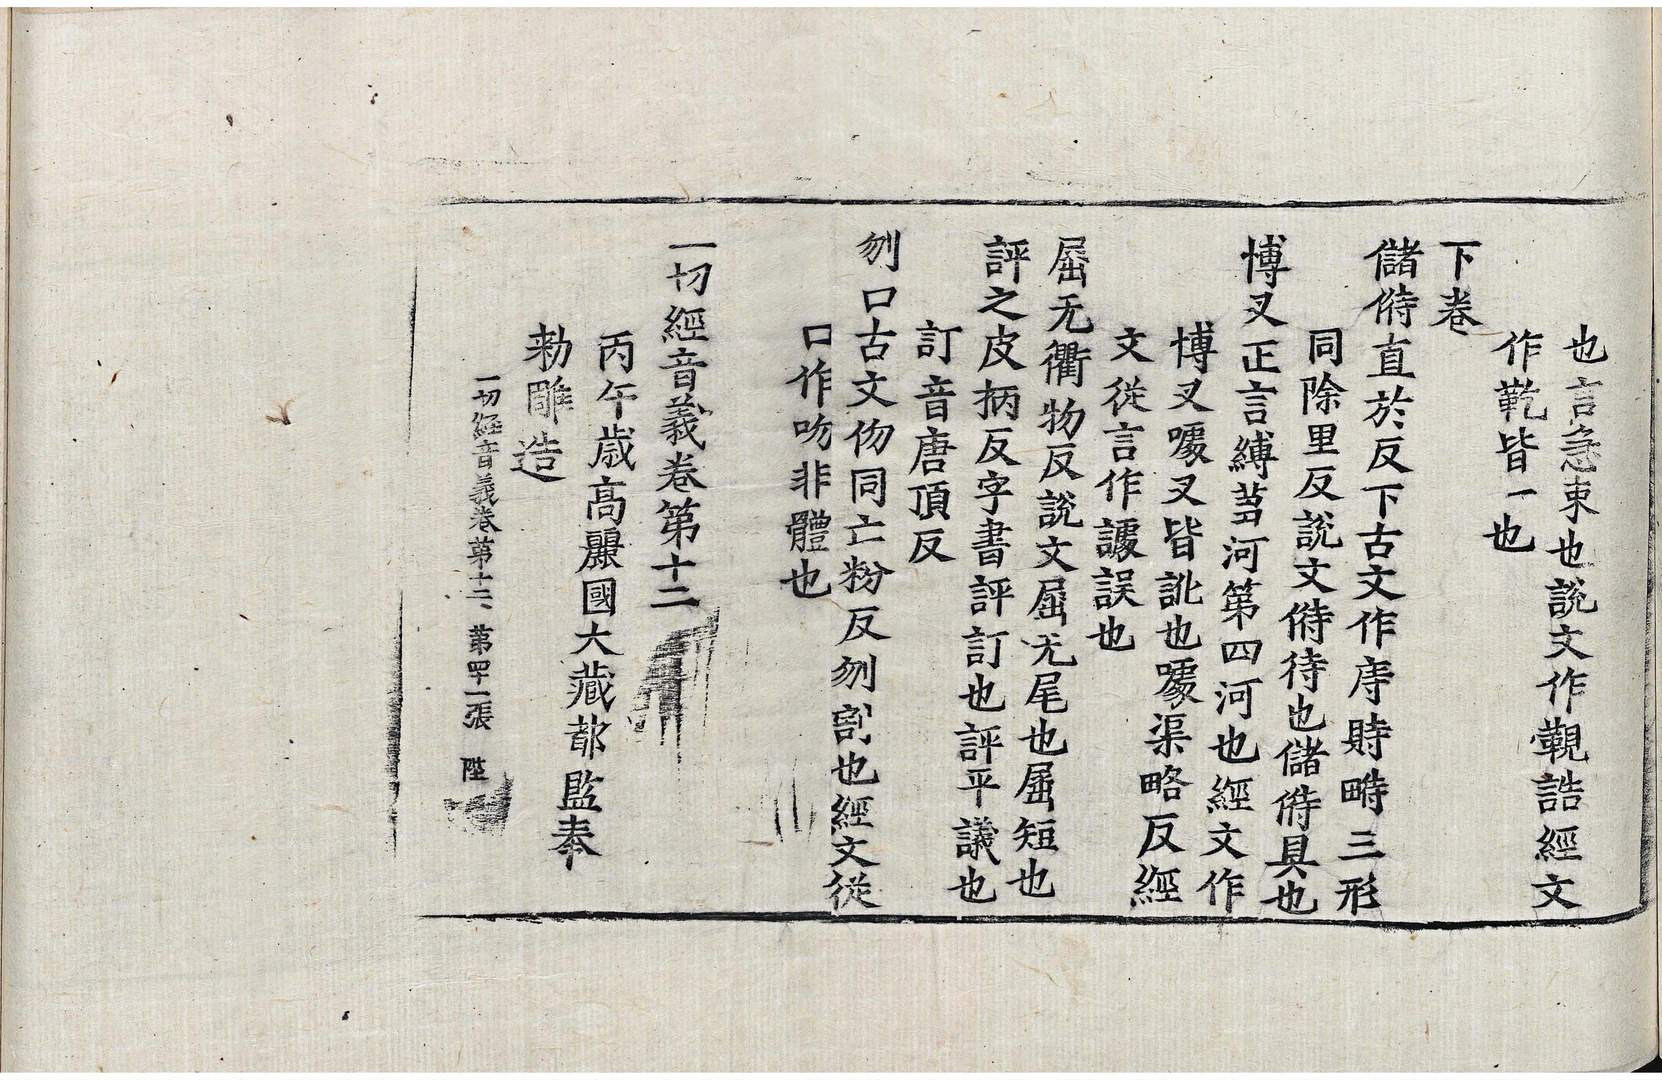 也言急束也說文作䩭誥經文
作䩭皆一也
下卷
儲偫直於反下古文作庤𧶠畤三形
同除里反說文偫待也儲偫具也
博叉正言縛芻河第四河也經文作
博叉噱叉皆訛也噱渠略反經
文從言作謔誤也
屈无衢物反說文屈无尾也屈短也
評之皮柄反字書評訂也評平議也
訂音唐頂反
刎口古文伆同亡粉反刎割也經文從
口作吻非體也
一切經音義卷第十二
丙午歳高麗國大藏都監奉
勅雕造
一切經音義卷第十二、第四十一張 陛